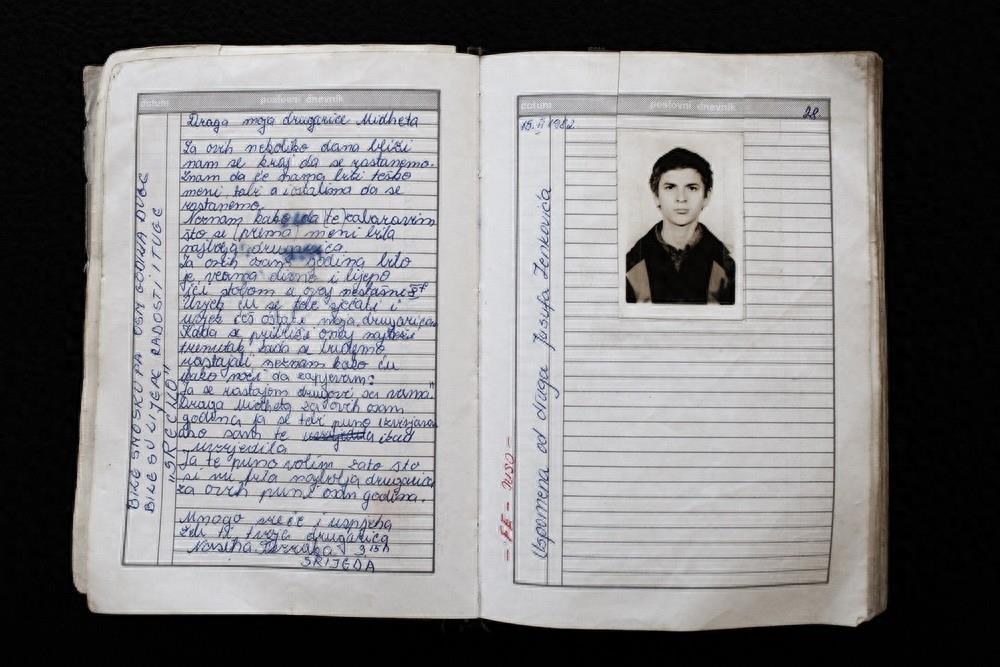 datum
poslovni dnevnik
Draga moja drugarice Midheta
Za ovih nekoliko dana bliži
nam se kraj da se rastanemo.
Znam da će nama biti teško
meni, tebi a i ostalima da se
rastanemo.
Neznam kako da te zaboravim
što si prema meni bila
najbolja drugarica
Za ovih osam godina bilo
je veoma divno i lijepo
ići stobom u ovaj nestašni
Uvjek ću se tebe sjećati i
uvjek ćeš ostati moja drugarica
Kada se približi onaj
trenutak, kada se budemo
rastajali neznam kako ću
moći da zapjevam:
"Ja se rastajem drugovi sa vama"
Draga Midheta za ovih osam
godina ja se tebi puno izvinjavam
ako sam te ikad
uvrjedila
Ja te puno volim zato što
si mi bila najbolja drugarica
za ovih punih osam godina.
Mnogo sreće i uspjeha
želi ti tvoja drugarica
3,15h
SRIJEDA
BILE SMO SKUPA OSAM GODINA DUGE
BILE SU LIJEPE RADOSTI I TUGE
datum
poslovni dnevnik
28.
1982.
Uspomena od druga Jusufa